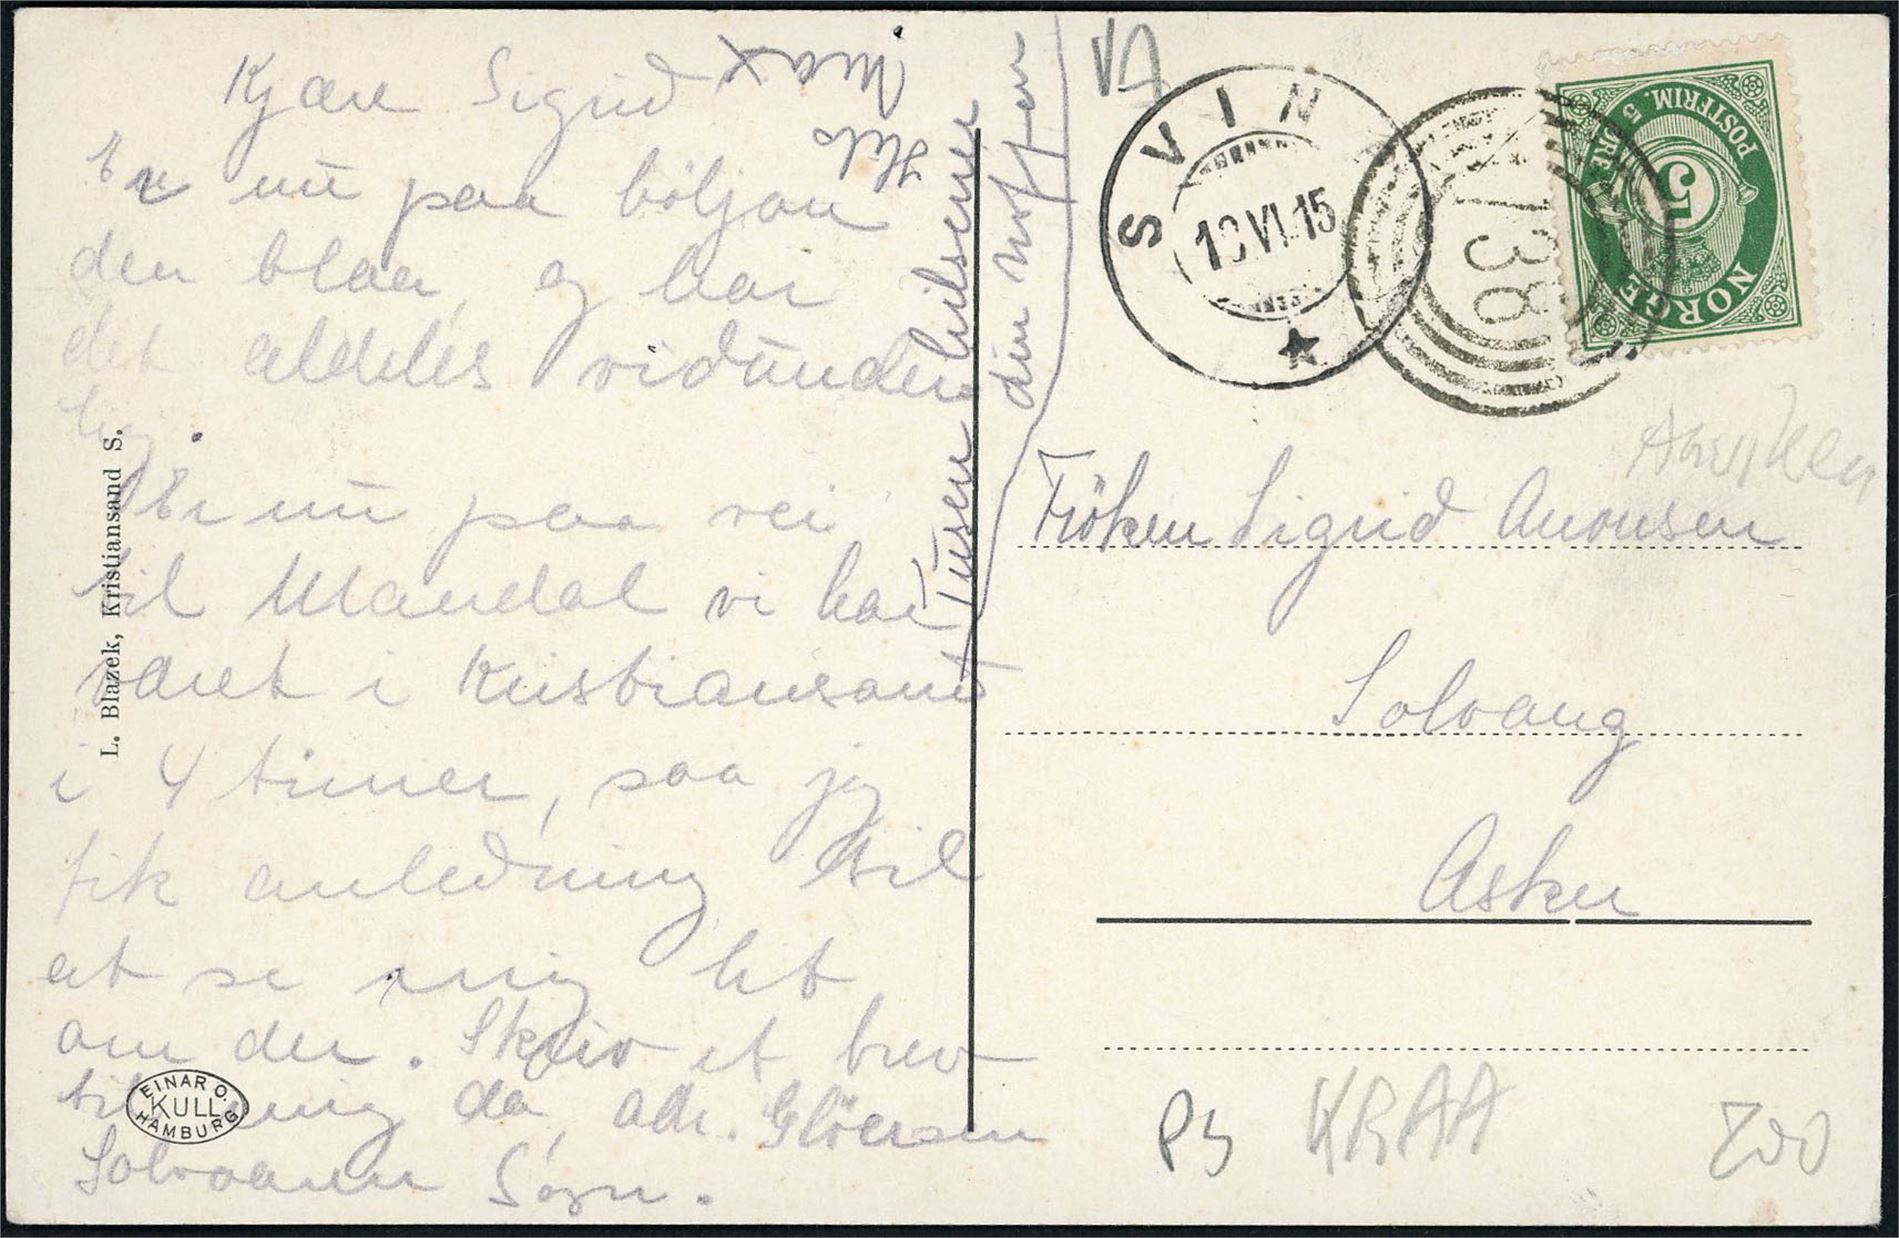 Kjære Sigrid
Er nu paa böljan
den blaa, og har
det aldeles vidunder
lig.
Er nu paa vei
til Mandal vi har
været i Kristiansand
i 4 timer, saa jeg
fik anledning til
at se mig litt
om der. Skriv et brev
til mig da, adr. Glöersen
Solvaann Sogn.
Tusen hilsener
din
Hils
Max
L. Blazek, Kristiansand S.
EINAR O.
KULL
HAMBURG
VA
SVIN
VI.15
138
POSTFRIM. 5 ØRE
5
NORGE
Fröken Sigrid Aronsen
Solvang
Asker
KRAA
200